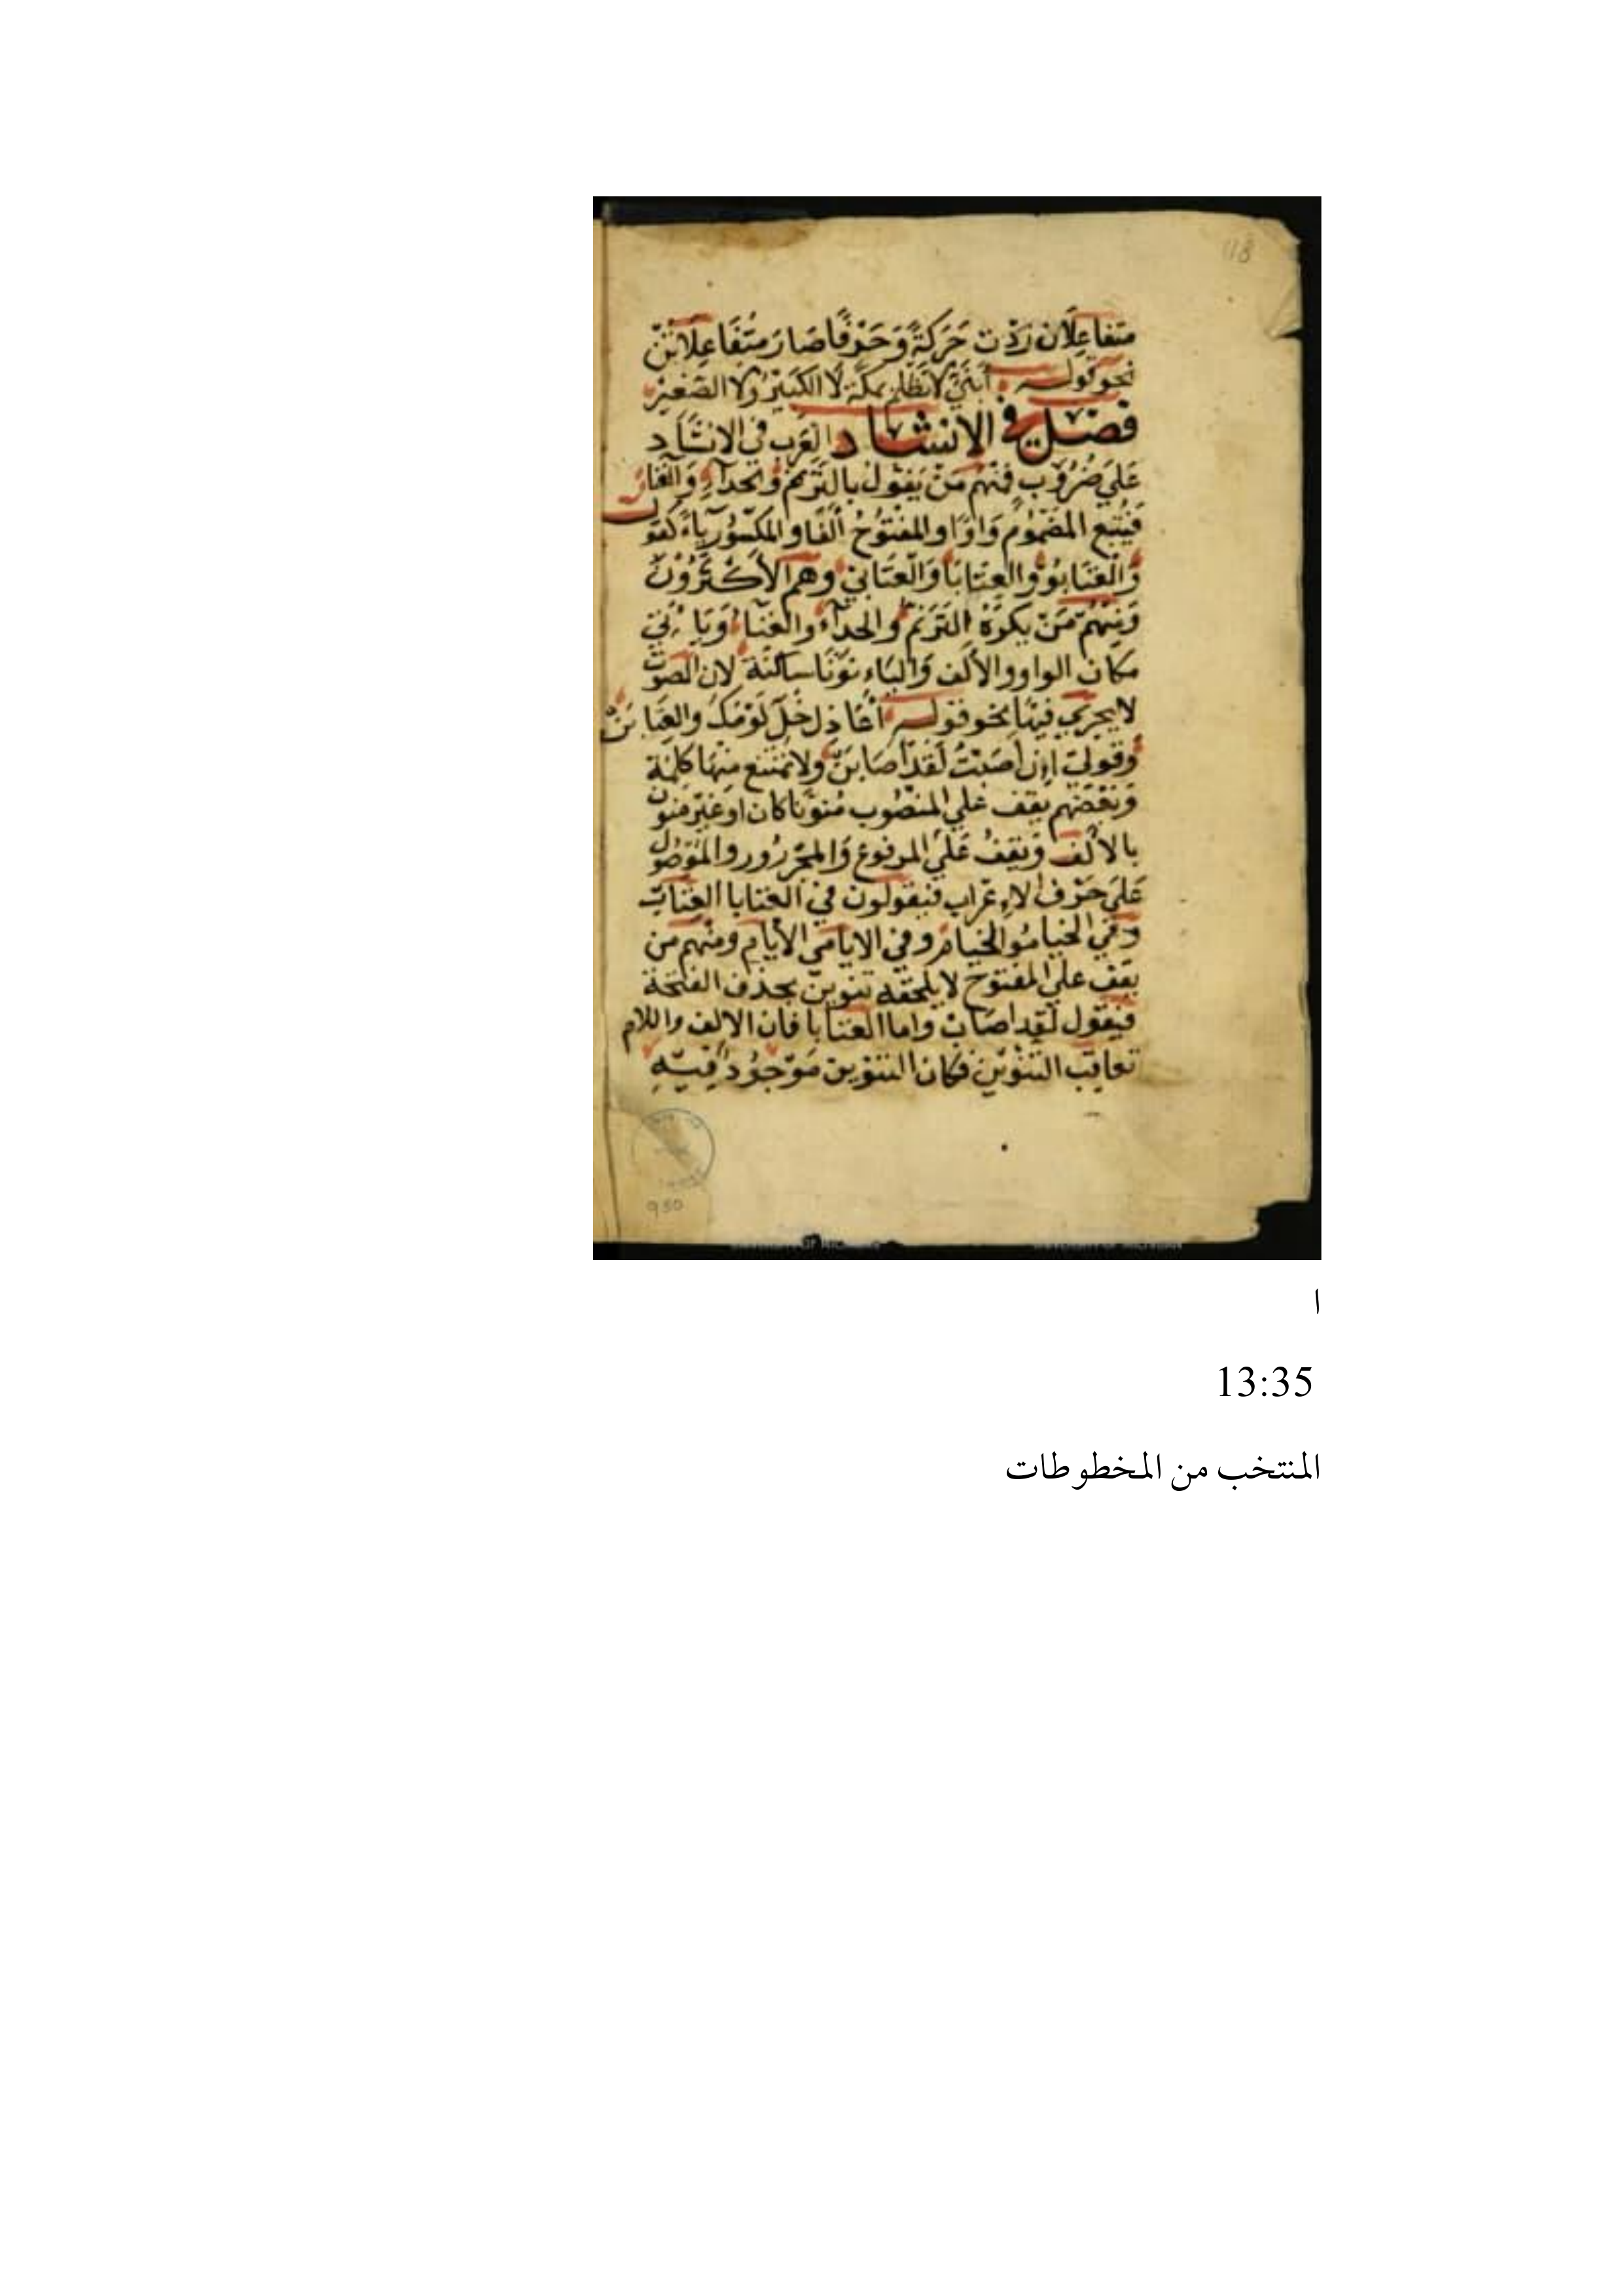 118
متفاعلان زدت حَرَكةً وَحَرْفًا صَارَ مُتَفَاعِلَاتُنْ
نحو قوله أبُنَيَّ لا تظلم بمكّة لا الكبير ولا الصّغير
فصل في الانشاد العَرب في الانشَاد
عَلى ضُرُوب فمنهم مَنْ يَقول بالتّرنم والحداء والغناء
فيُتبع المضموم وَاوًا والمفتوحُ ألفًا والمكسور ياء كقولك
وَالعتَابُو والعِتَابَا وَالعتَابي وهم الأكثرُونَ
وَمنهمْ مَنْ يكرَهُ الترنم والحداء والغناء وَيَاءتي
مكان الواو والألف وَالياء نونًا ساكنة لان الصّوت
لا يجري فيها نحو قوله أعَاذل خلّ لَوْمَك والعتَابَنْ
وقولي إن أصَبْتُ لقد أصَابَنْ ولا تمتنع منهَا كلمة
وَبعْضهم يقف على المنصُوب مُنوّنا كان او غيْر منون
بالألف وَيَقفُ عَلى المرفوع وَالمجْرُور والموْصُول
عَلى حَرْف الاءعراب فيقولون في العتابا العِتَابْ
وَفي الخيامُو الخيام وفي الايامي الأيام ومنهم من
يقف على المفتوح لا يلحقه تنوين بحذف الفتحة
فيَقول لَقد اصَابْ واما العتَابا فان الالف واللام
تعاقب التنوين فكان التنوين مَوْجُود فيه
950
ا
13:35
المنتخب من المخطوطات